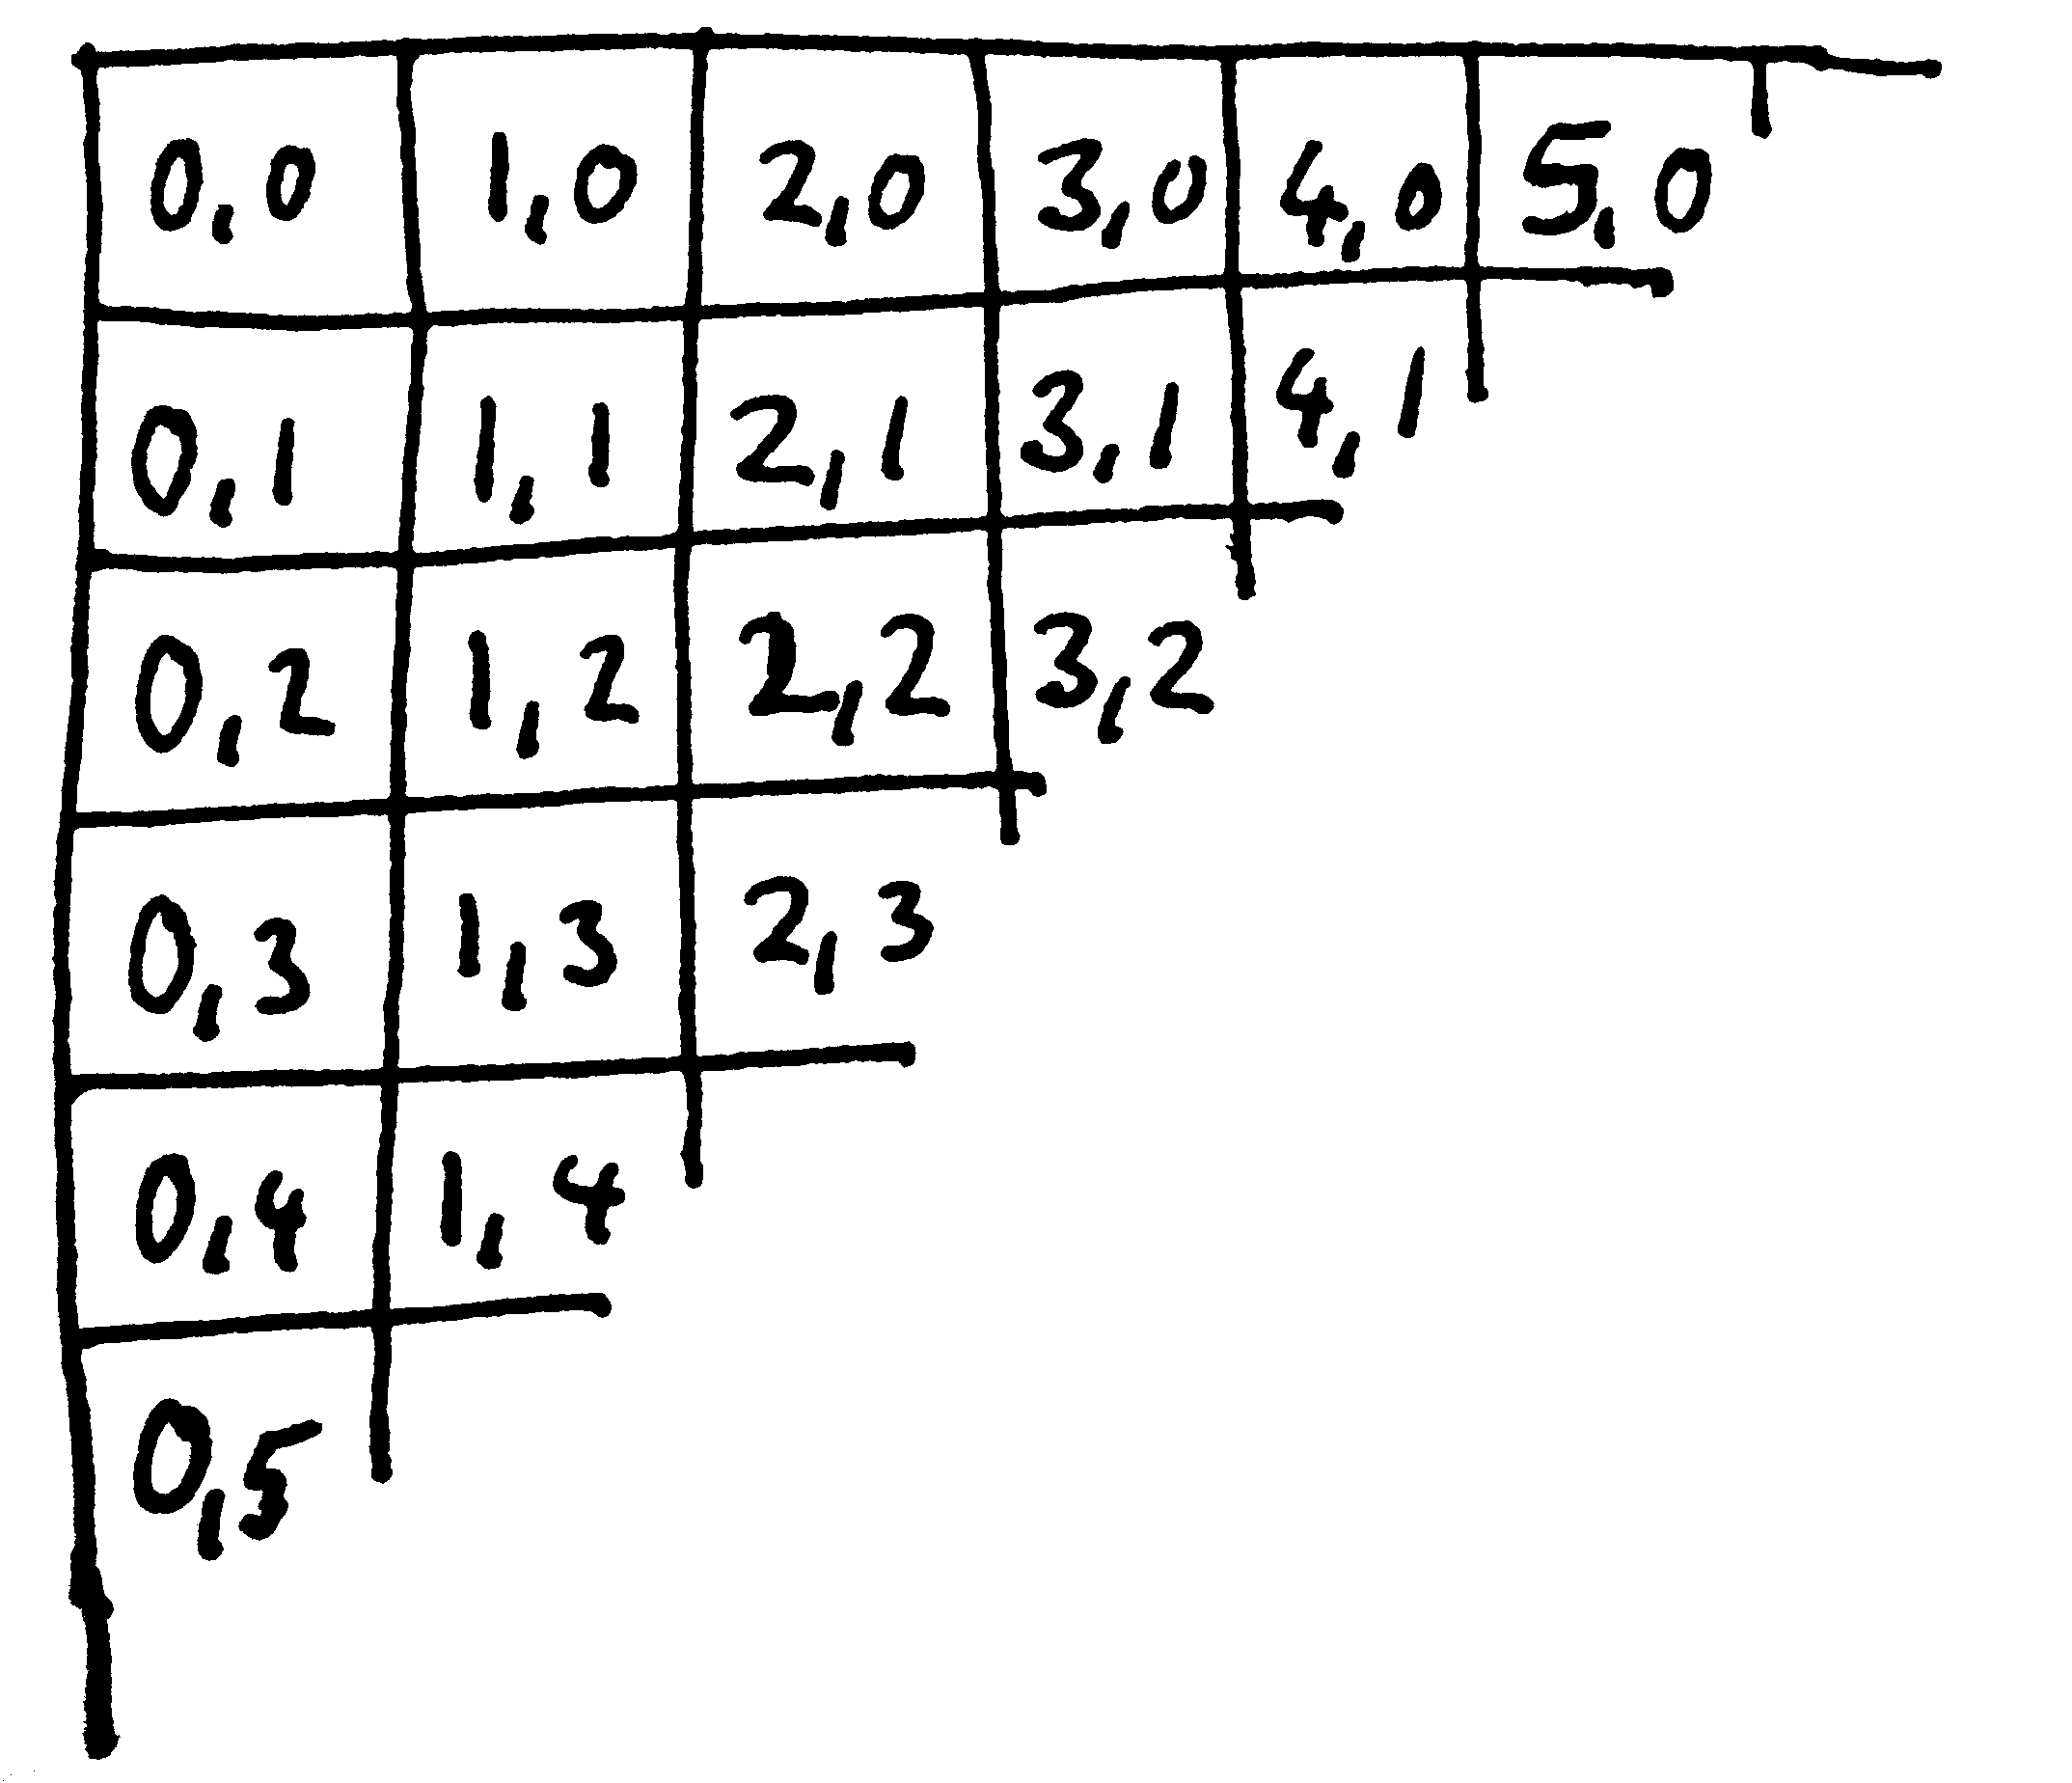 0,0 1,0 2,0 3,0 4,0 5,0
0,1 1,1 2,1 3,1 4,1
0,2 1,2 2,2 3,2
0,3 1,3 2,3
0,4 1,4
0,5